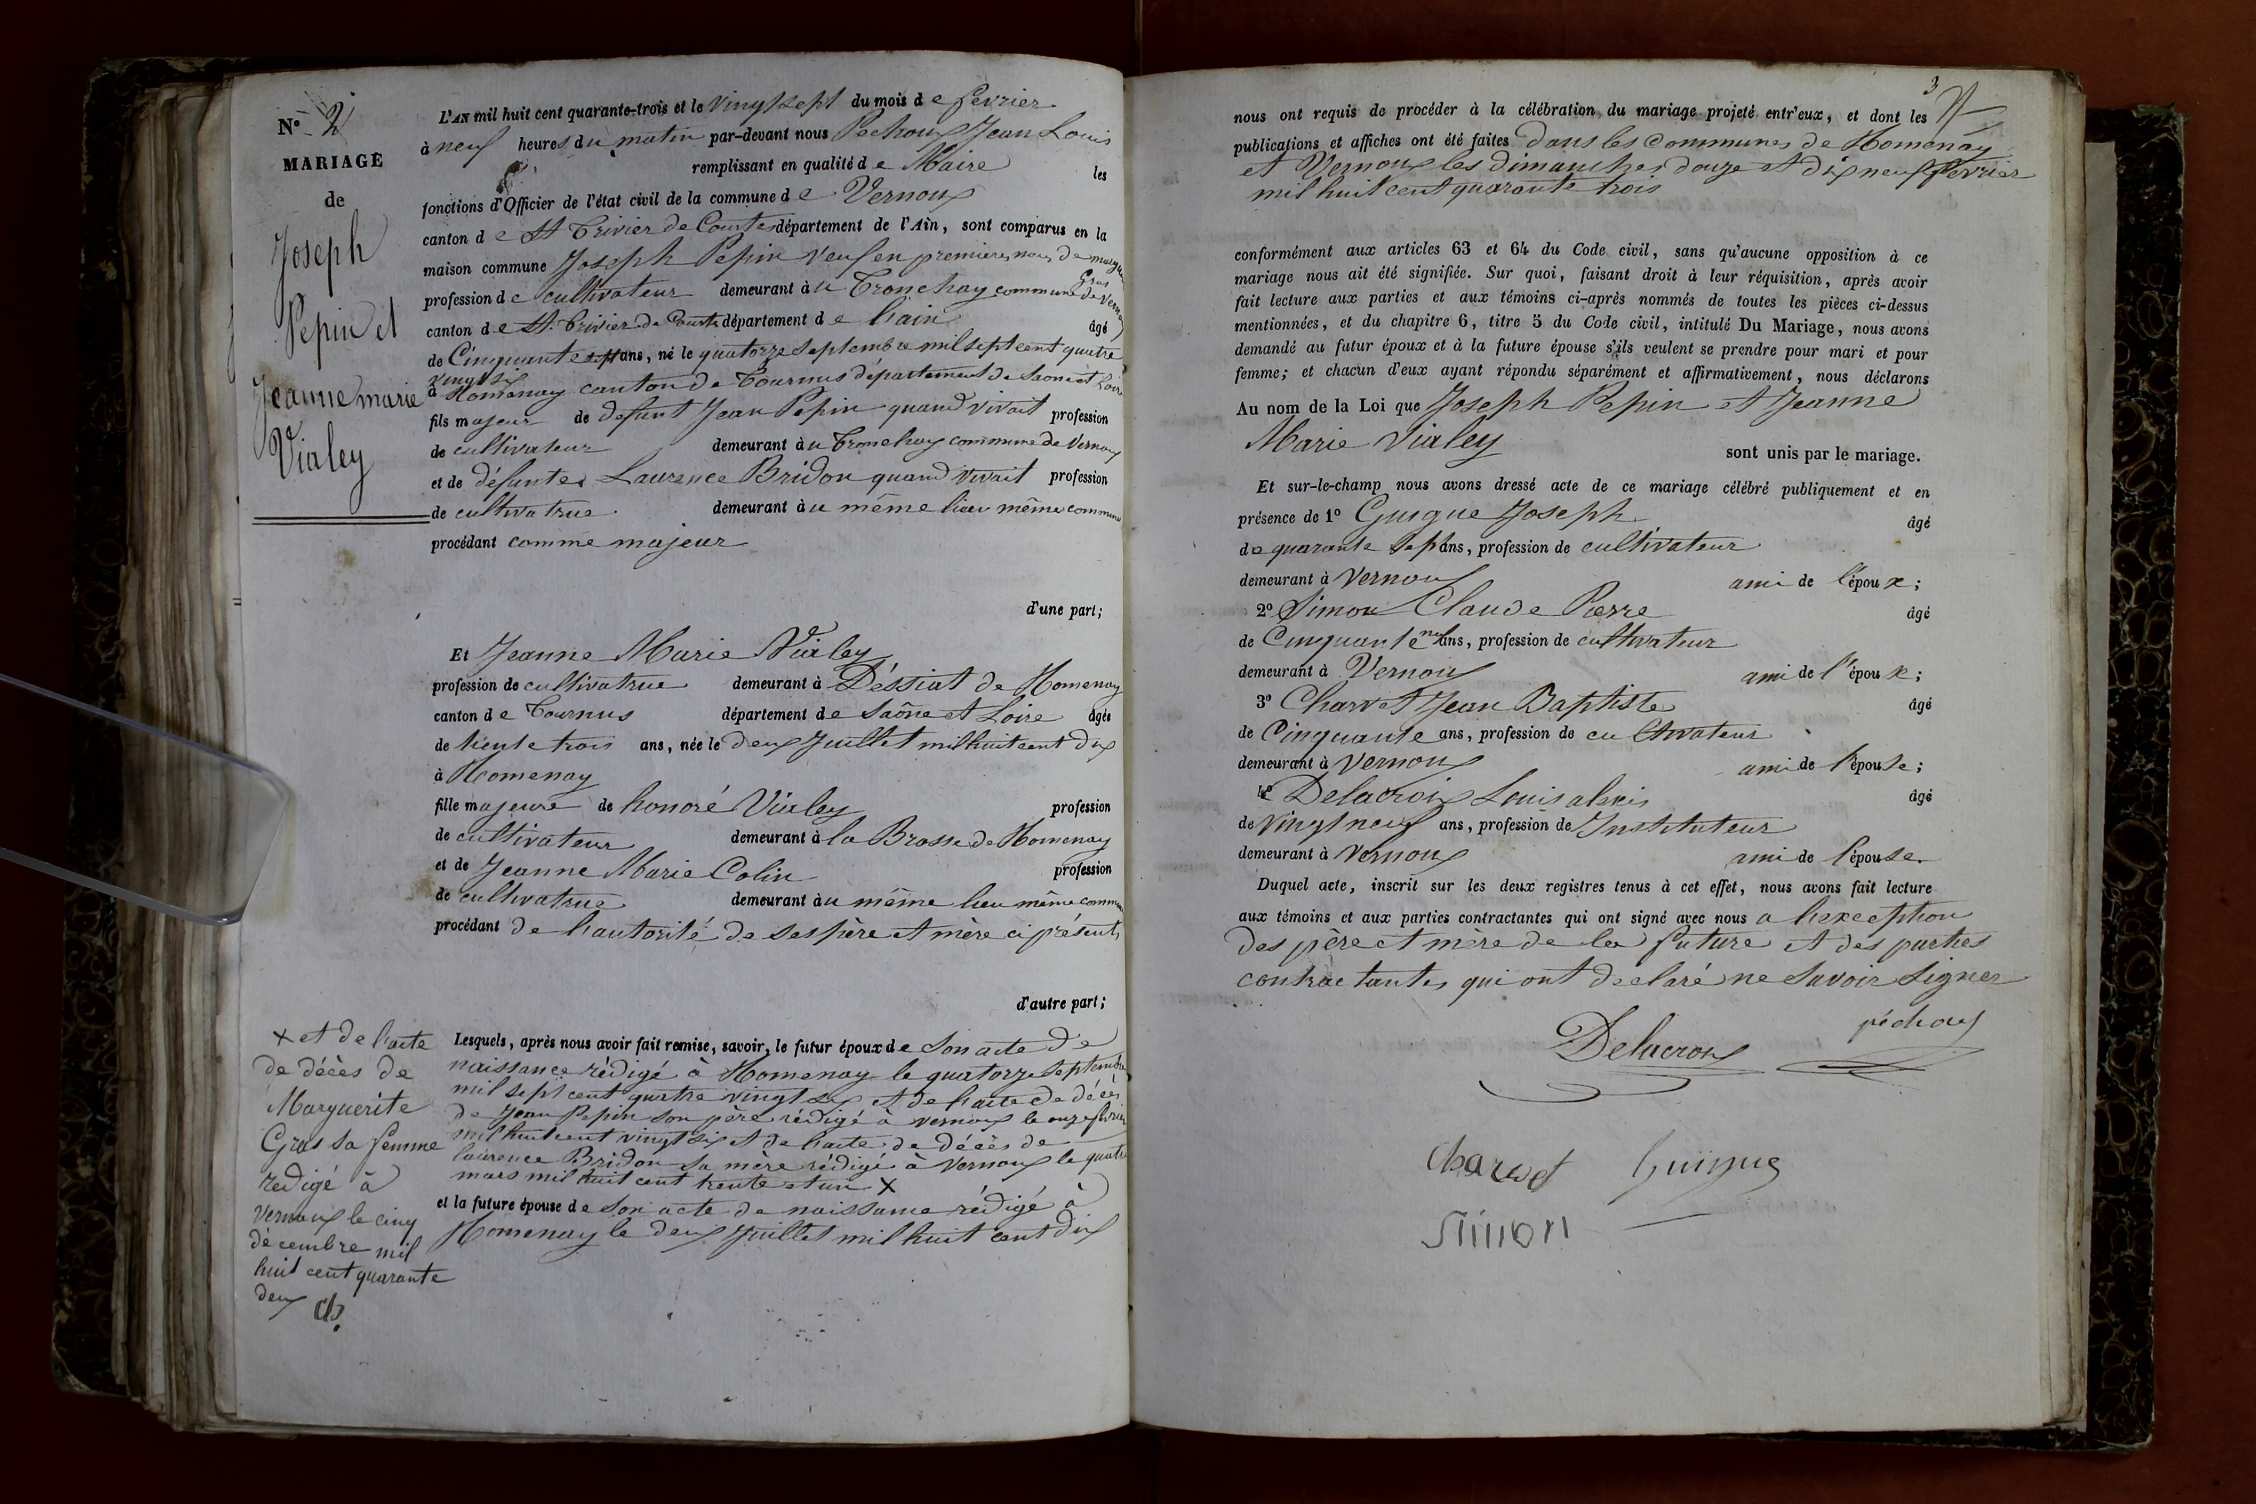 N° 2
MARIAGE
de
Joseph
Pepin et
Jeanne marie
Vialey
L'AN mil huit cent quarante-trois et le vingtsept du mois de fevrier
à neuf heures du matin par-devant nous Pechoux Jean Louis
remplissant en qualité de Maire les
fonctions d'Officier de l'état civil de la commune de Vernoux
canton de St Trivier de Courtes département de l'Ain, sont comparus en la
maison commune Joseph Pepin veuf en premieres noces de marguerite
Gras
profession de cultivateur demeurant au Tronchay commune de Vernoux
canton de St. Trivier de Courtes département de hain âgé
de Cinquante sept ans, né le quatorze septembre mil sept cent quatre
vingt six
à Romenay canton de Tournus département de Saone et Loire
fils majeur de defunt Jean Pepin quand vivait profession
de cultivateur demeurant au Tronchay commune de Vernoux
et de défunte Laurence Bridon quand vivait profession
de cultivatrice demeurant au même lieu même commune
procédant comme majeur
d'une part;
Et Jeanne Marie Vialey
profession de cultivatrice demeurant à Déssiat de Romenay
canton de Tournus département de Saône et Loire âgée
de trente trois ans, née le deux Juillet mil huit cent dix
à Romenay
fille majeure de honoré Vialey profession
de cultivateur demeurant à la Brosse de Romenay
et de Jeanne Marie Colin profession
de cultivatrice demeurant au même lieu même commune
procédant de hautorité de ses père et mère ci présents
d'autre part;
Lesquels, après nous avoir fait remise, savoir, le futur époux de Son acte de
naissance rédigé à Romenay le quatorze septembre
mil sept cent quatre vingt six et de hacte de décès
de Jean Pepin son père rédigé à vernoux le onze fevrier
mil huit cent vingt six et de hacte de décès de
laurence Bridon sa mère rédigé à Vernoux le quatre
mars mil huit cent trente et un X
et la future épouse de Son acte de naissance rédigé à
Romenay le deux Juillet mil huit cent dix
X et de l'acte
de décès de
Marguerite
Gras sa femme
redigé à
vernoux le cinq
décembre mil
huit cent quarante
deux
3
nous ont requis de procéder à la célébration du mariage projeté entr'eux, et dont les
publications et affiches ont été faites dans les communes de Romenay
et Vernoux les dimanches douze et dix neuf fevrier
mil huit cent quarante trois
conformément aux articles 63 et 64 du Code civil, sans qu'aucune opposition à ce
mariage nous ait été signifiée. Sur quoi, faisant droit à leur réquisition, après avoir
fait lecture aux parties et aux témoins ci-après nommés de toutes les pièces ci-dessus
mentionnées, et du chapitre 6, titre 5 du Code civil, intitulé Du Mariage, nous avons
demandé au futur époux et à la future épouse s'ils veulent se prendre pour mari et pour
femme; et chacun d'eux ayant répondu séparément et affirmativement, nous déclarons
Au nom de la Loi que Joseph Pepin et Jeanne
Marie Vialey
sont unis par le mariage.
Et sur-le-champ nous avons dressé acte de ce mariage célébré publiquement et en
présence de 1° Guigue Joseph âgé
de quarante sept ans, profession de cultivateur
demeurant à Vernoux ami de l'époux;
2° Simon Claude Pierre âgé
de Cinquante neuf ans, profession de cultivateur
demeurant à Vernoux ami de l'époux;
3° Charvet Jean Baptiste âgé
de Cinquante ans, profession de cultivateur
demeurant à Vernoux ami de l'épouse;
4° Delacroix Louis alexis âgé
de vingt neuf ans, profession de Instituteur
demeurant à Vernoux ami de l'épouse.
Duquel acte, inscrit sur les deux registres tenus à cet effet, nous avons fait lecture
aux témoins et aux parties contractantes qui ont signé avec nous a hexception
des père et mère de la future et des parties
contractantes qui ont declaré ne savoir signer
péchoux
Delacroix
Charvet Guigue
Simon